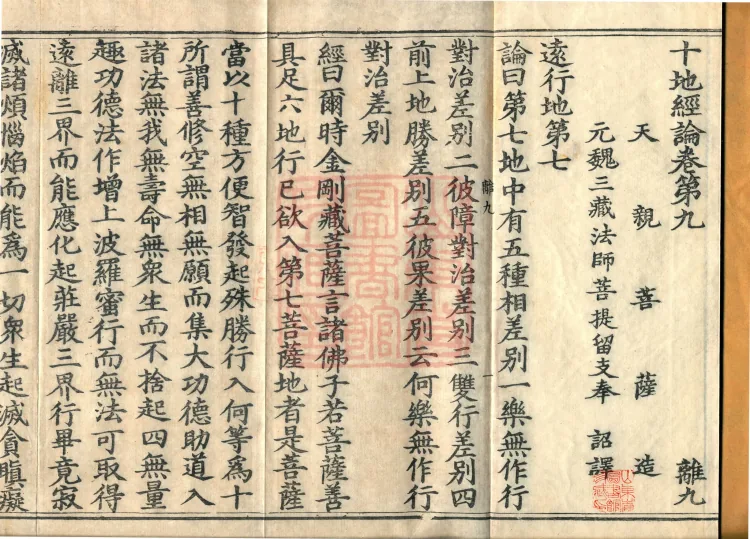 十地經論卷第九 離九
天親菩薩造
元魏三藏法師菩提留支奉 詔譯
遠行地第七
論曰第七地中有五種相差別一樂無作行
對治差別二彼障對治差別三雙行差別四
離九
一
前上地勝差別五彼果差別云何樂無作行
對治差別
經曰爾時金剛藏菩薩言諸佛子若菩薩善
具足六地行已欲入第七菩薩地者是菩薩
當以十種方便智發起殊勝行入何等為十
所謂善修空無相無願而集大功德助道入
諸法無我無壽命無衆生而不捨起四無量
趣功德法作增上波羅蜜行而無法可取得
遠離三界而能應化起莊嚴三界行畢竟寂
滅諸煩惱焰而能為一切衆生起滅貪瞋癡